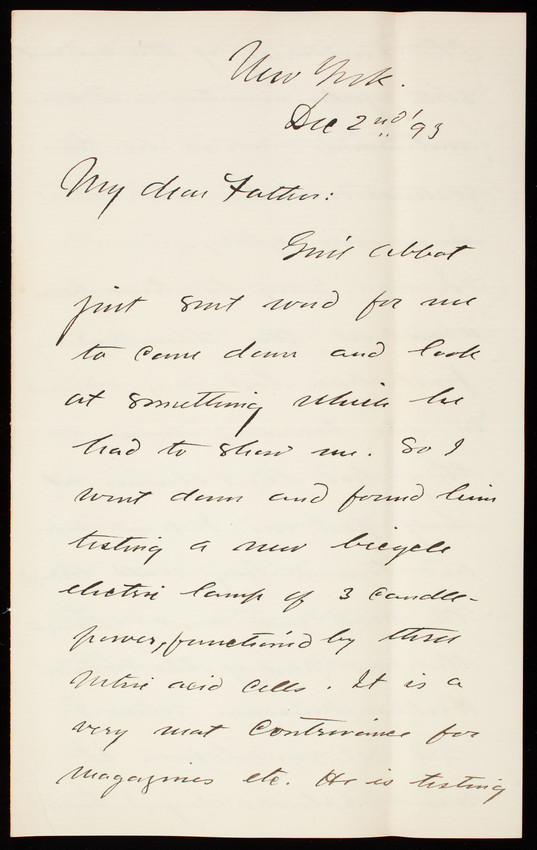 New York.
Dec 2nd '93
My dear Father:
Gen'l Abbot
just sent word for me
to come down and look
at something which he
had to show me. So I
went down and found him
testing a new bicycle
electric lamp of 3 candle-
power, function'd by three
Nitric acid cells. It is a
very neat contrivance for
magazines etc. He is testing